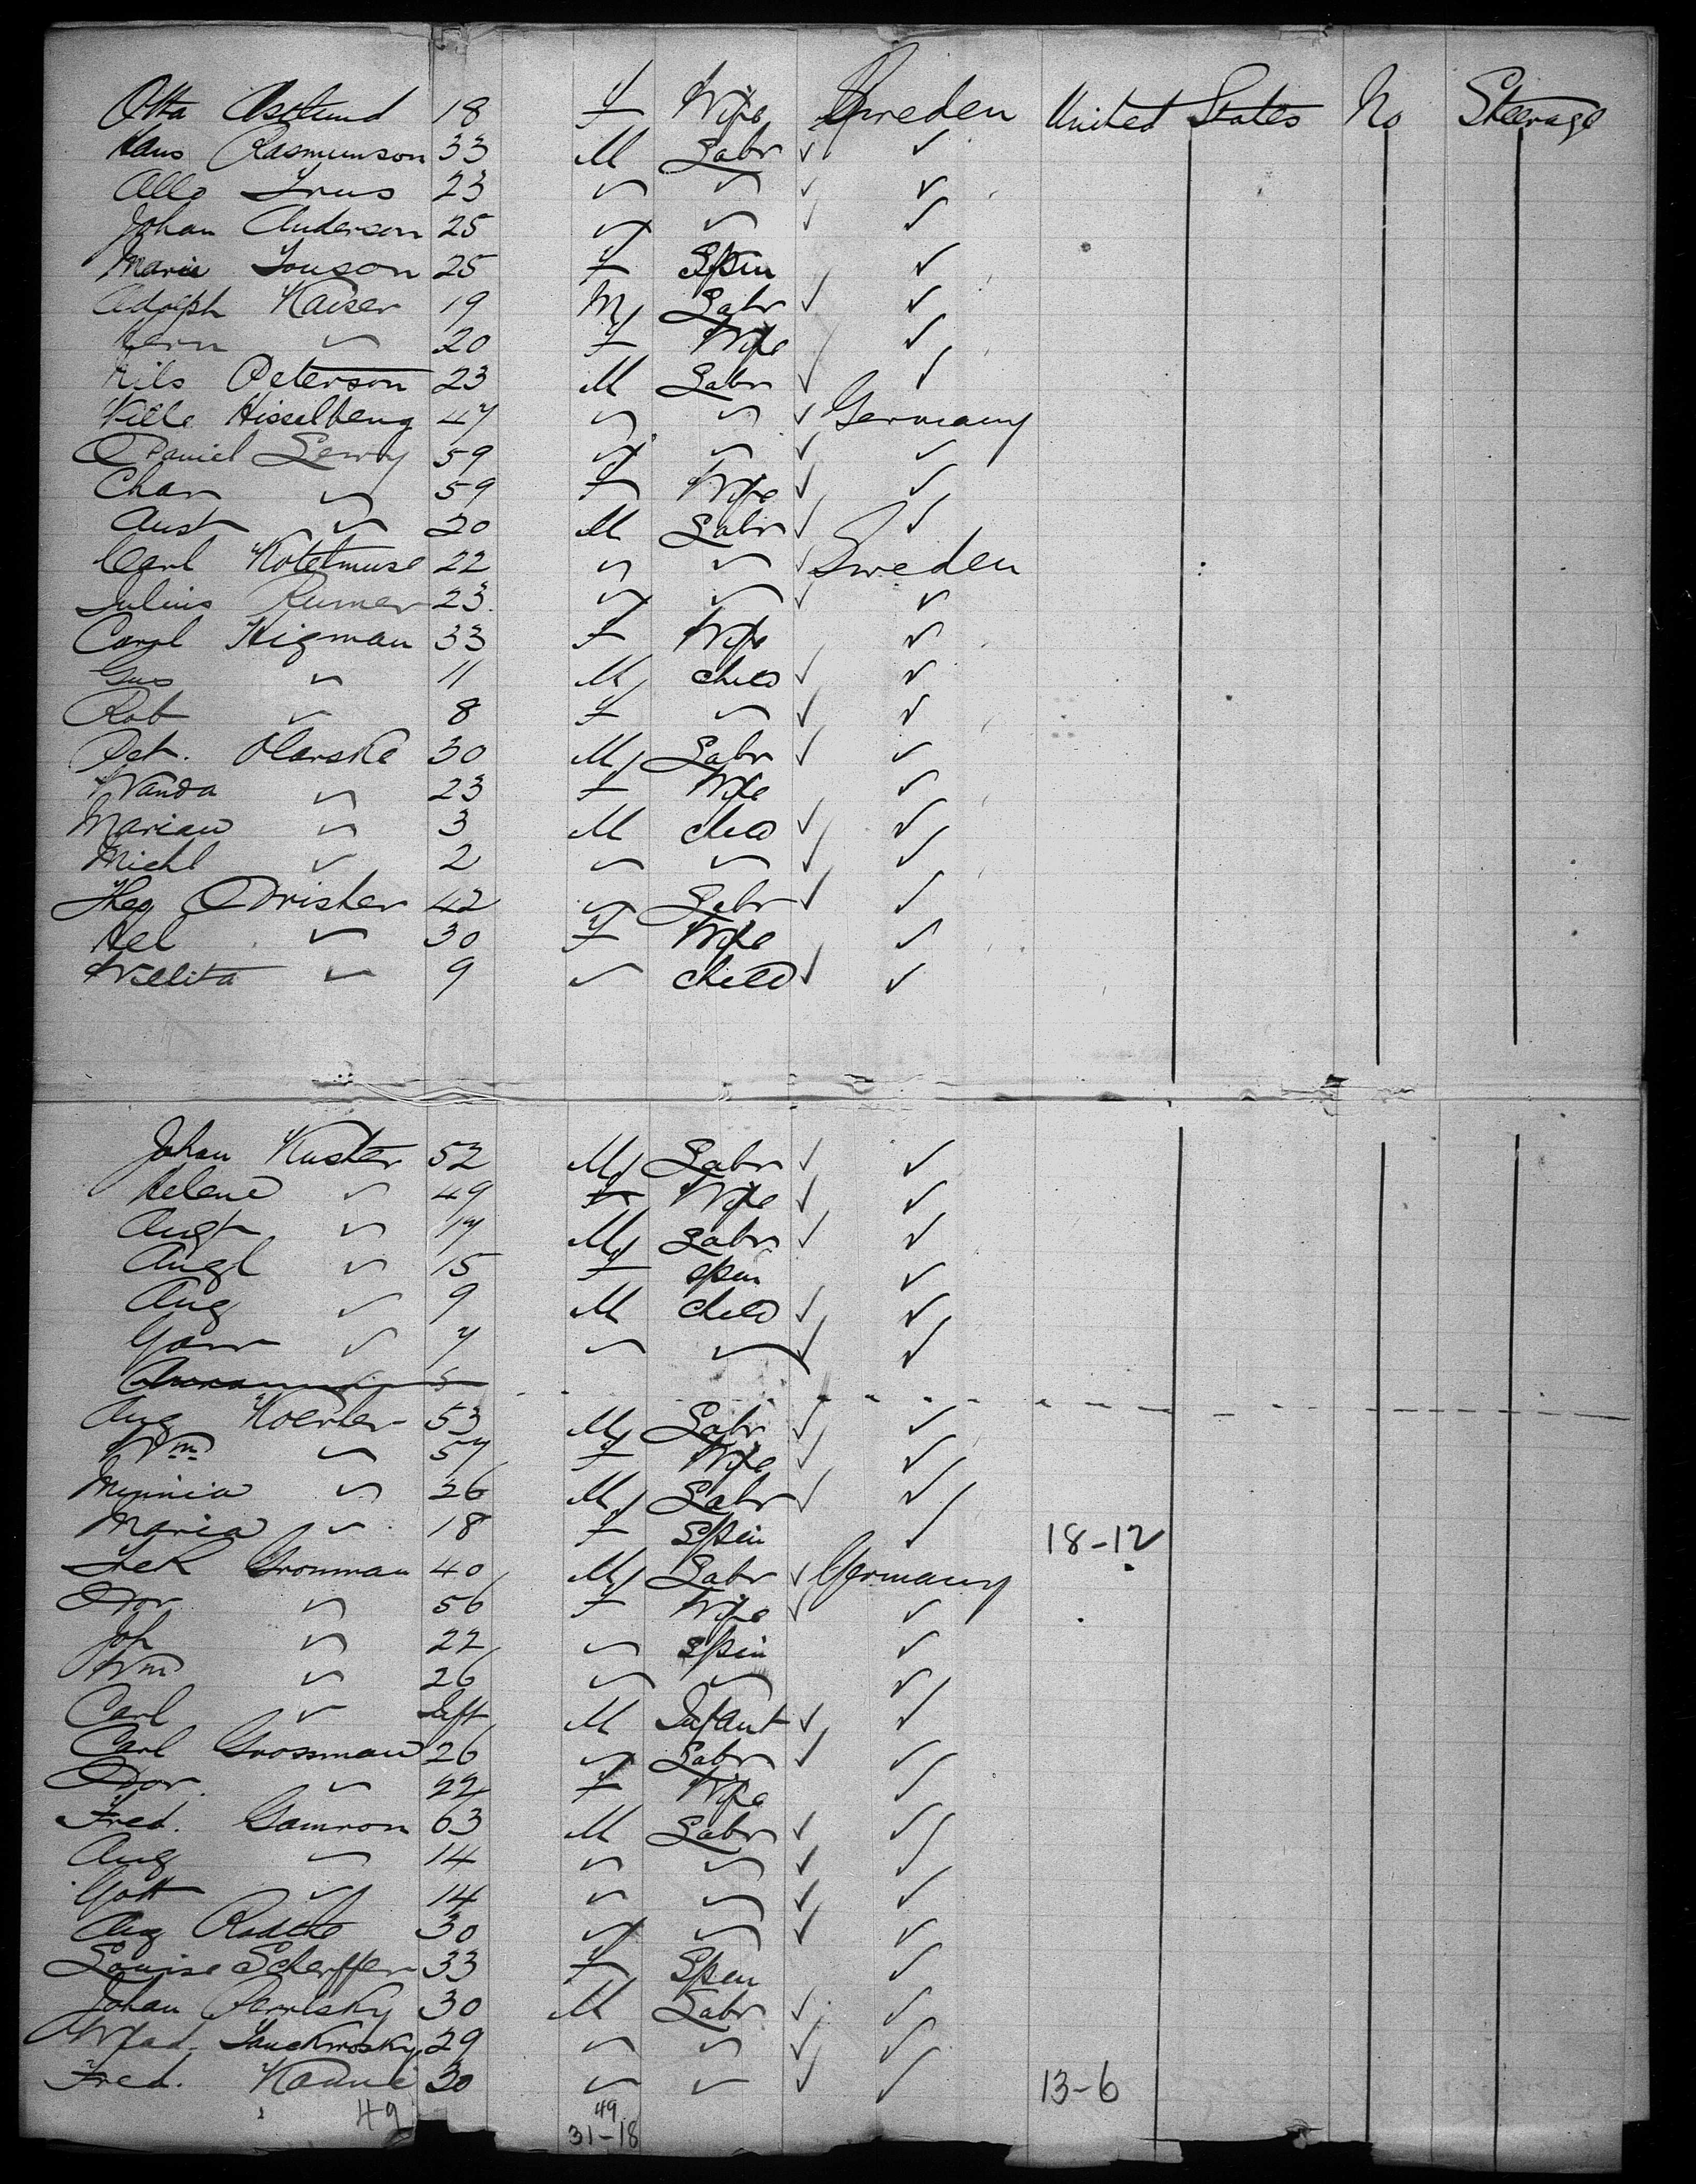 Otta Astlund 18 F Wife Sweden United States No Steerage
Hans Rasmunson 33 M Labr ✓ ✓
Alls 23 " " ✓ ✓
Johan Anderson 25 " " ✓ ✓
Maria Jonson 25 F Spin ✓
Adolph Kaiser 19 M Labr ✓ ✓
" 20 F Wife ✓
Nils Peterson 23 M Labr ✓ ✓
Wille Hisselberg 47 " " ✓ Germany
Daniel Lewy 59 " " ✓ ✓
Char " 59 F Wife ✓ ✓
Aust " 20 M Labr ✓ ✓
Carl 22 " " ✓ Sweden
Julius Rumer 23 " " ✓ ✓
Carol Higman 33 F Wife ✓
Gus " 11 M child ✓ ✓
Rob " 8 F " ✓ ✓
Pet. Olarske 30 M Labr ✓ ✓
Wanda " 23 F Wife ✓
Marian " 3 M child ✓ ✓
Michl " 2 " " ✓ ✓
Drisher 42 " Labr ✓ ✓
Hel " 30 F Wife ✓
Wellita " 9 " child ✓ ✓
Johan Kuster 52 M Labr ✓ ✓
Helene " 49 F Wife ✓ ✓
Augt " 17 M Labr ✓ ✓
Augl " 15 F Spin ✓
Aug " 9 M child ✓ ✓
" 7 " " ✓ ✓
5
Aug Koerler 53 M Labr ✓ ✓
Wm " 57 F Wife ✓ ✓
Minnia " 26 M Labr ✓ ✓
Maria " 18 F Spin ✓ 18-12
Gronman 40 M Labr ✓ Germany
Dor " 56 F Wife ✓ ✓
Joh " 22 " Spin ✓
Wm " 26 " " ✓
Carl " Inft M Infant ✓ ✓
Carl Grossman 26 " Labr ✓ ✓
Dor. " 22 F Wife ✓
Fred. Gamron 63 M Labr ✓ ✓
Aug " 14 " " ✓ ✓
Gott " 14 " " ✓ ✓
Aug Radtke 30 " " ✓ ✓
Louise Scherffer 33 F Spin ✓
Johan 30 M Labr ✓ ✓
Wlad. 29 " " ✓ ✓
Fred. 30 " " ✓ ✓ 13-6
49 49
31-18